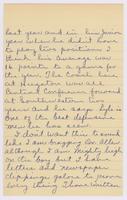 last year and in his Junior
year when he didn't have
to play two positions I
think his average was
14 points to a game for
the year. The Coach have
at Houston was All
Central Conference forward
at Southwestern two
years and he says Lyle is
one of the best defensive
men he has seen.
I don't want this to sound
like I am bragging on Allen
although I am mighty high
on the boy but I have
letters and newspaper
clippings galore to prove
every thing I have written